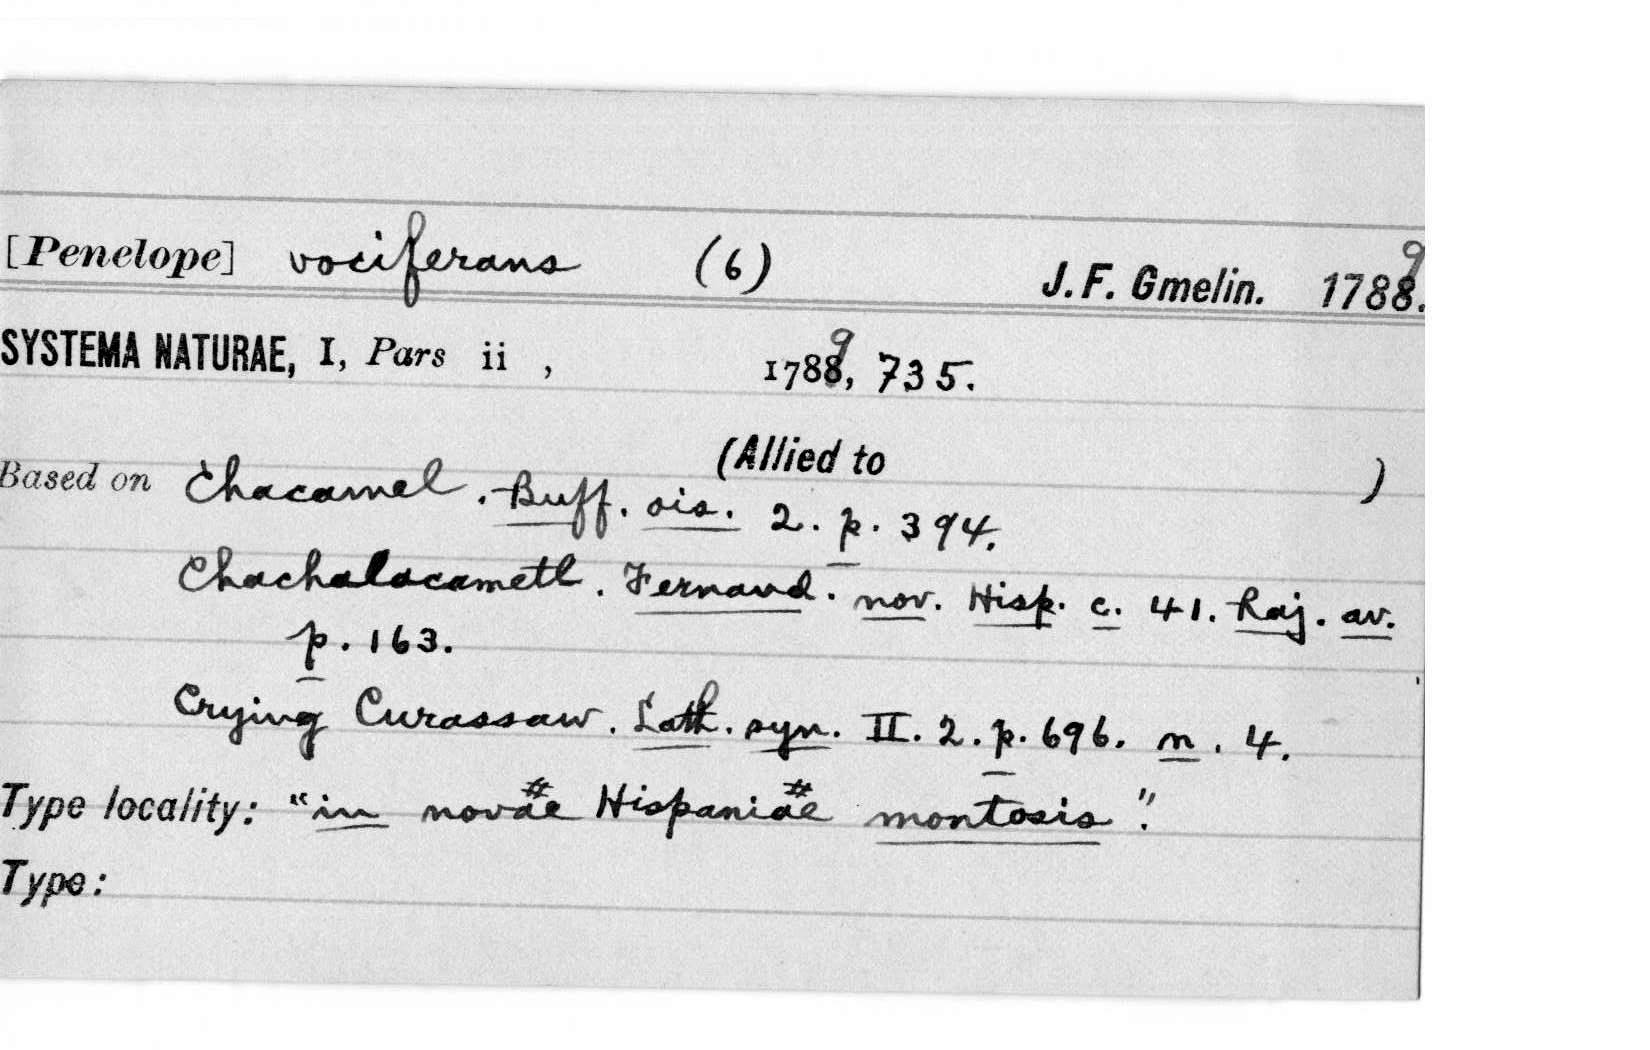 [Penelope] vociferans (6) J. F. Gmelin. 17889.
SYSTEMA NATURAE, I, Pars ii , 17889, 735.
(Allied to )
Based on Chacamel. Buff. ois. 2. p. 394.
Chachalacametl. Fernand. nov. Hisp. c. 41. Raj. av.
p. 163.
Crying Curassaw. Lath. syn. II. 2. p. 696. n. 4.
Type locality: "in novae Hispaniae montosis".
Type: